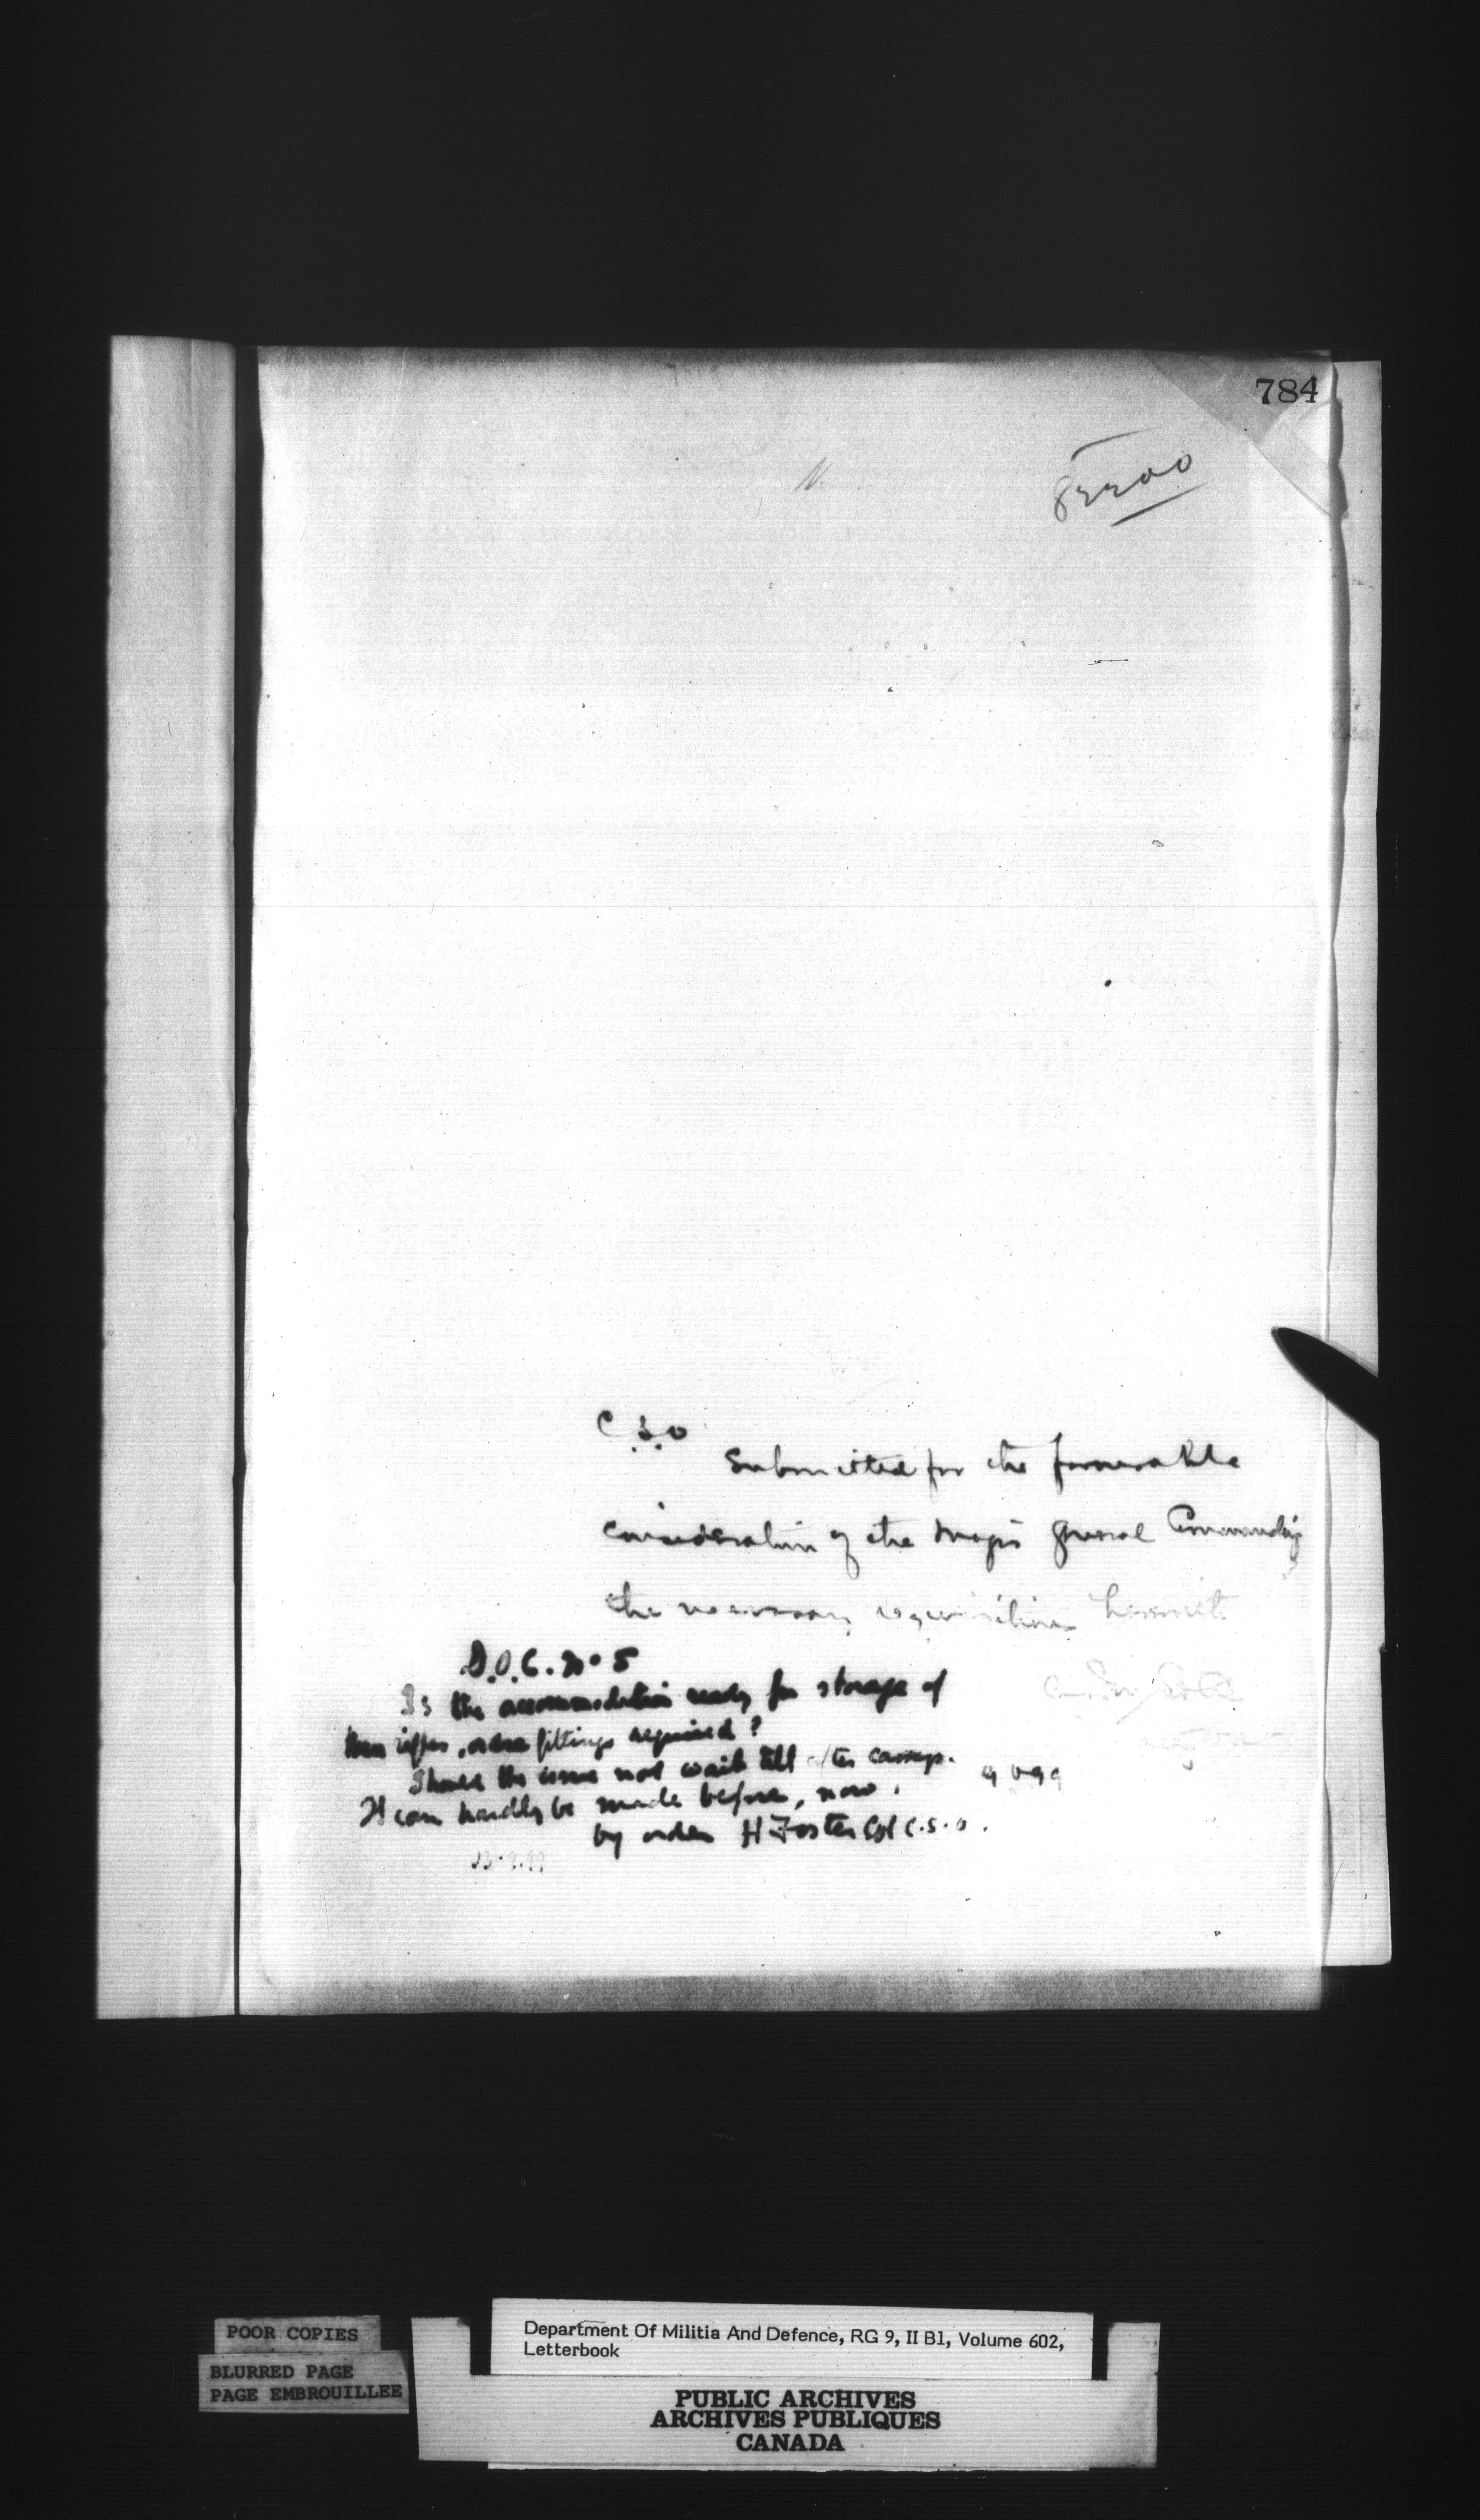 784
82200
C.S.O
Submitted for the favourable
consideration of the Major General Commanding
the necessary requisitions herewith
D.O.C. No 5
Is the accommodation ready for storage of
these rifles, or are fittings required?
Should the issue not wait till after camp.
It can hardly be made before, now.
by order H Foster Col C.S.O.
POOR COPIES
BLURRED PAGE
PAGE EMBROUILLEE
Department Of Militia And Defence, RG 9, II B1, Volume 602,
Letterbook
PUBLIC ARCHIVES
ARCHIVES PUBLIQUES
CANADA